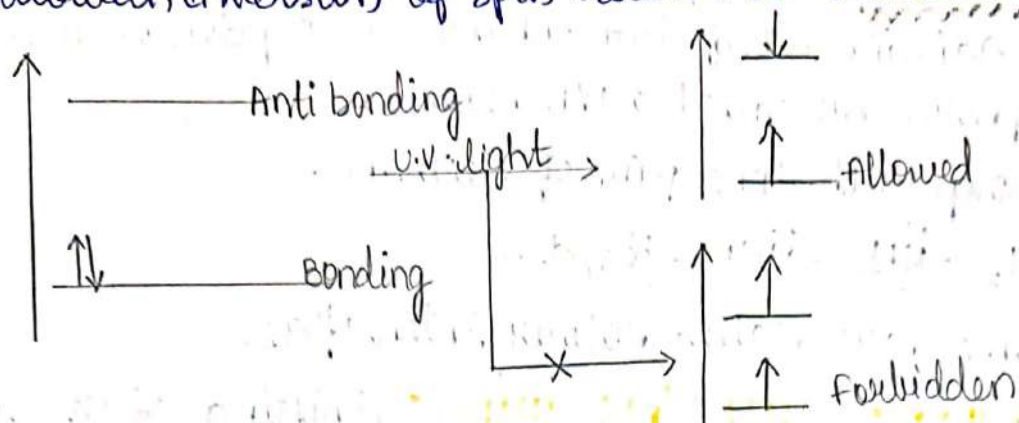 of spin
Anti bonding
U.V. light
Allowed
Bonding
Forbidden